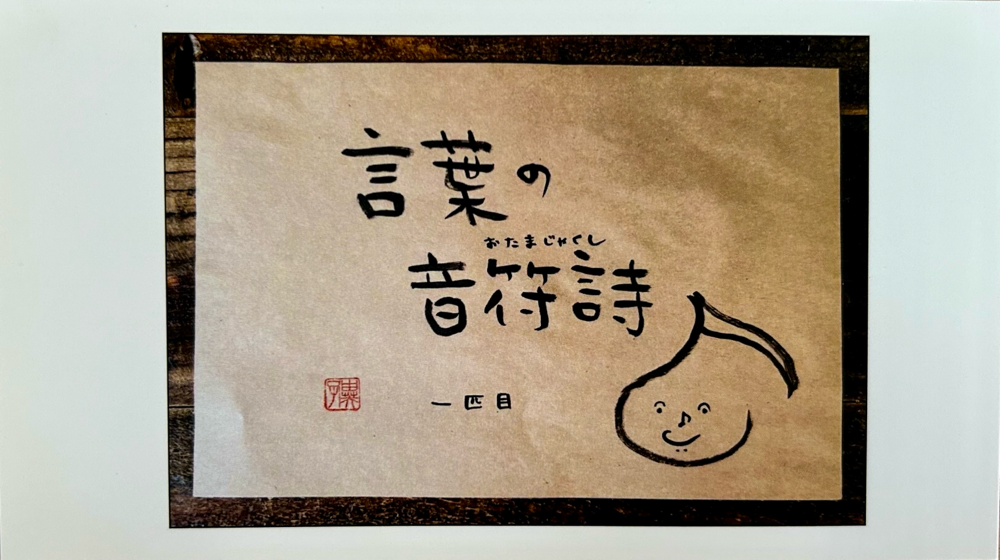 言葉の
おたまじゃくし
音符詩
一匹目